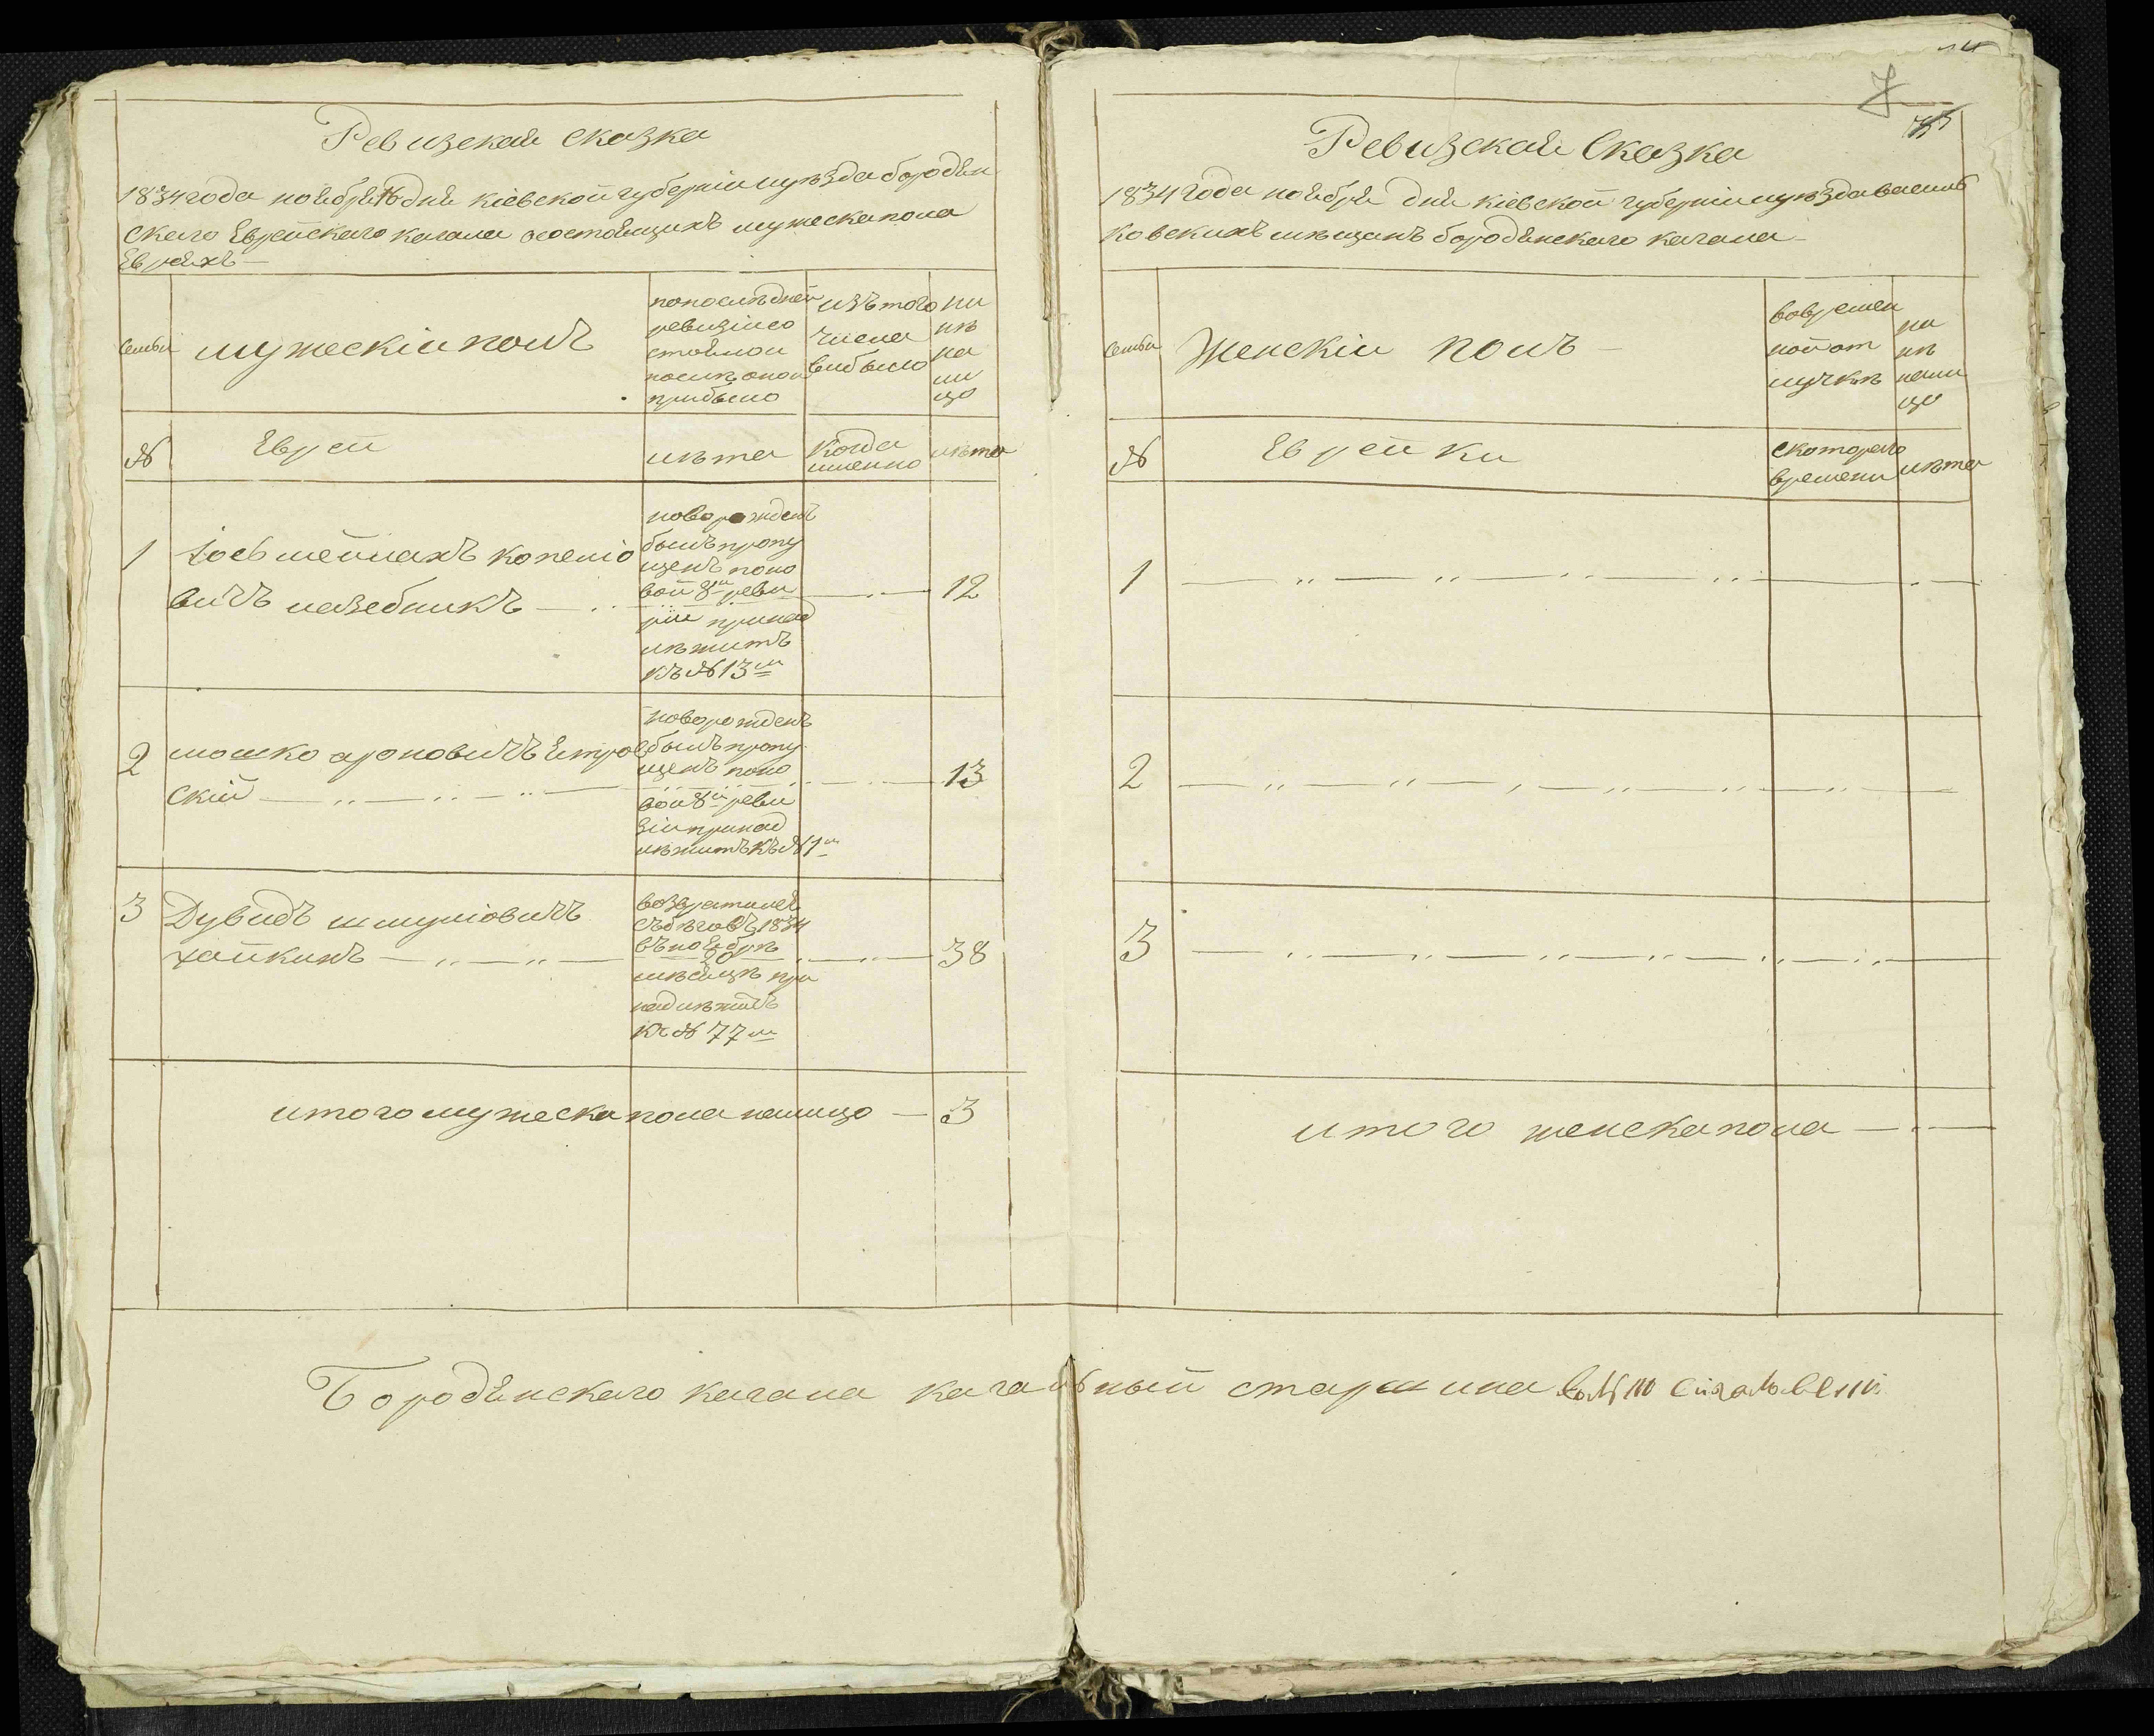 Ревизская сказка
1834 года ноября 16 дня кіевской губерніи уезда бородян
скаго Еврейскаго кагала осостоящихъ мужеска пола
Евреяхъ —
семьи
мужескій полъ
попоследней
ревизіи со
стояло и
после оной
прибыло
изътого
числа
выбыло
ны
не
на
ли
цо
№
Евреи
лета
когда
именно
лета
1
Іось мейлахъ копеліо
вичъ цезебникъ
новорожденъ
былъ пропу
щенъ поно
вой 8й реви
зіи принад
лежитъ
къ № 13му
12
2
мошко ароновичъ
скій
новорожденъ
былъ пропу
щенъ поно
вой 8й реви
зіи принад
лежитъ къ № 1му
13
3
Дувидъ шмуліовичъ
хайкинъ
возвратился
съ беговъ 1834
въ ноябре
месяце при
надлежитъ
къ № 77му
38
итого мужеска пола налицо — 3
7
Ревизская Сказка
1834 года ноября дня кіевской губерніи уезда василь
ковскихъ мещанъ бородянскаго кагала
семьи
Женскій полъ —
вовремен
ной от
лучке
ны
не
нали
цо
№
Еврейки
с котораго
времени
лета
1
2
3
итого женска пола —
Бородянскаго кагала кагальный старшина